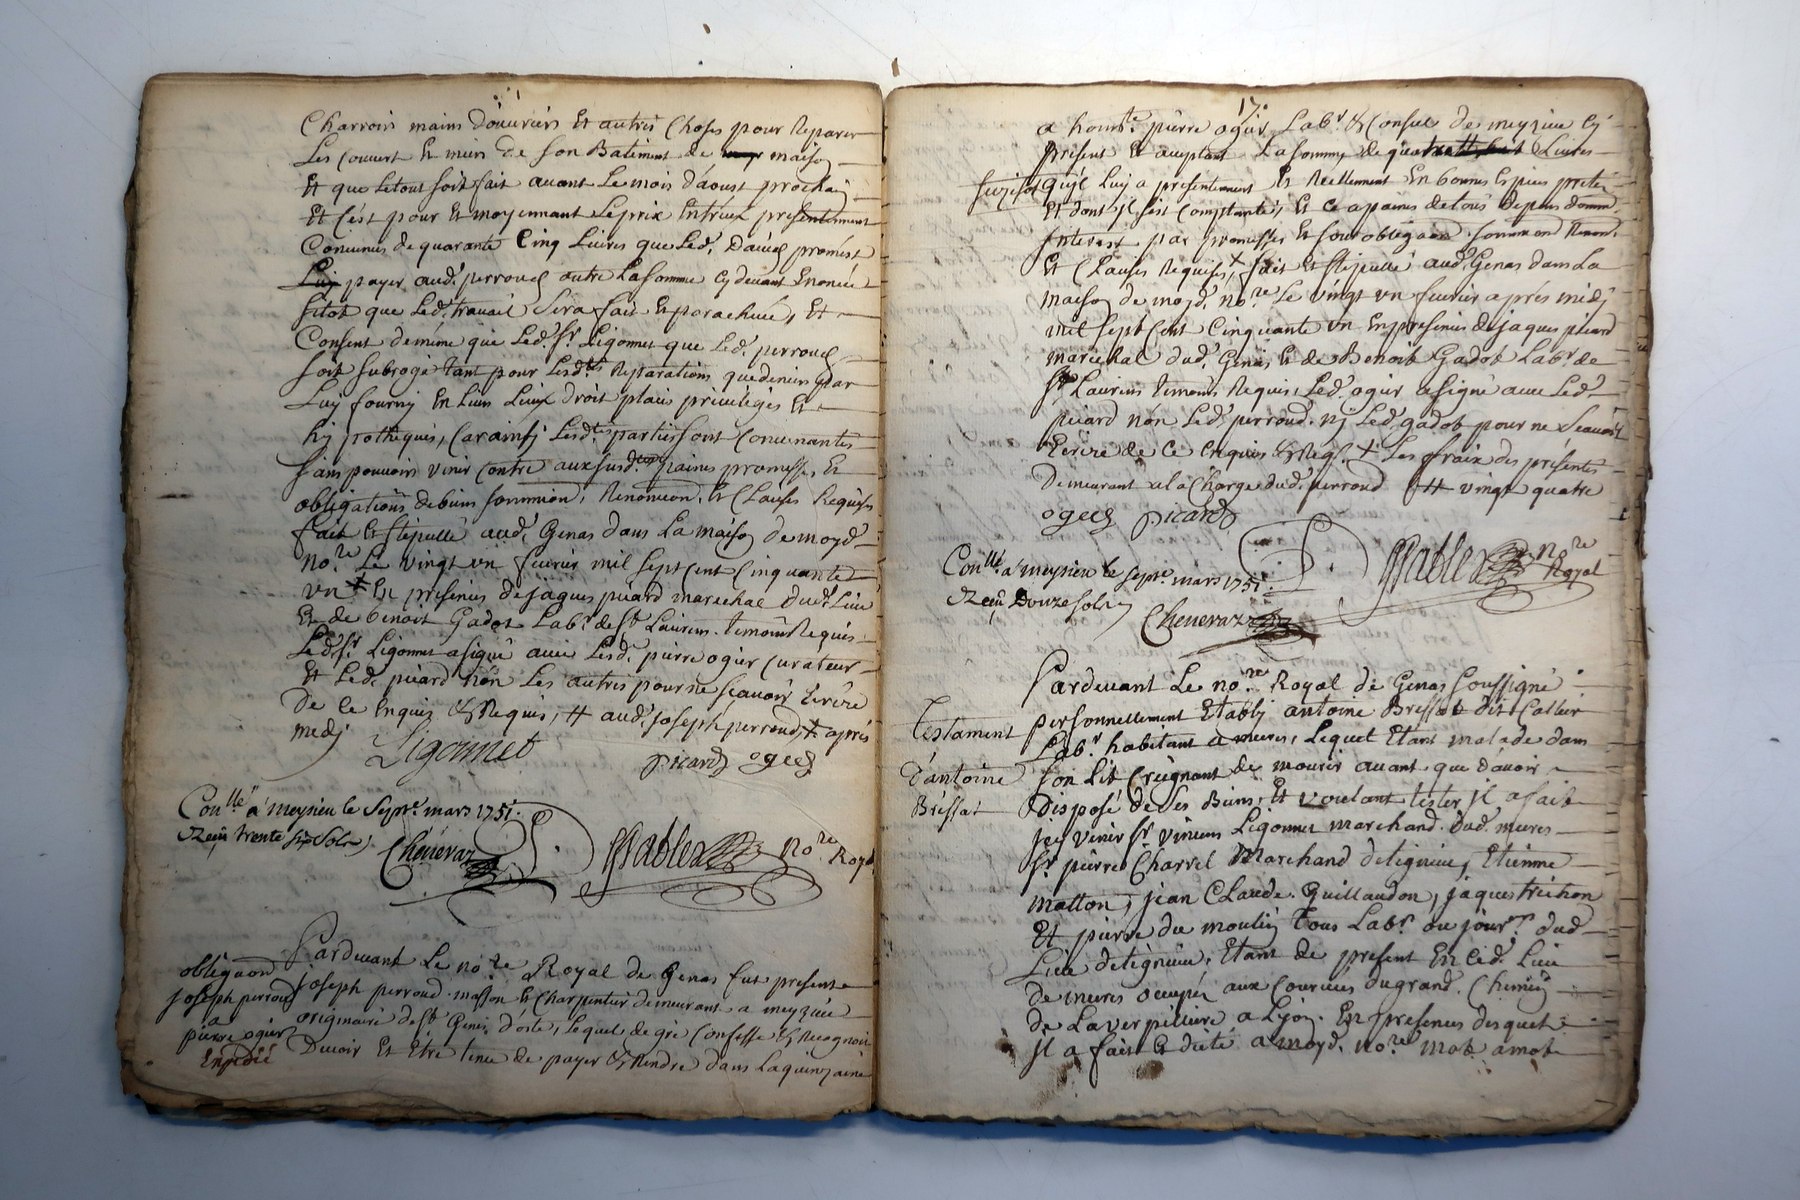 Charrois mains d'ouvriers Et autres Choses pour Reparer
Les Couvert Et murs de son Batiment de maison
Et que le tout soit fait avant Le mois d'aoust prochain
Et C'est pour Et moyennant Le prix Entreux presentement
Convenus de quarante Cinq Livres que Led. David promest
payer aud. perroud outre La somme Cy devant Enoncée
sitot que Led. travail Sera fait Et parachevé, Et
Consent de même que Led. Sr. Ligonnet que Led. perroud
soit subrogé tant pour Lesdtes Reparations que deniers par
Luy fourny En Leurs Lieux droit place privileges Et
hypotheques, Car ainsy Lesd. parties sont Convenantes
sans pouvoir venir Contre aux susd. paines promesses Et
obligations de biens soumission, Renonciaon, Et Clauses Requises
fait Et stipullé aud. Genas dans La maison de moyd.
No.re Le vingt un fevrier mil sept Cent Cinquante
un + En presence de jaques picard marechal dud. Lieu
Et de benoit Gadot Labr. de St. Laurens temoins Requis
Led. Sr. Ligonnet a signé avec Lesd. pierre ogier Curateur
Et Led. picard non Les autres pour ne sçavoir Ecrire
De Ce Enquis & Requis, # aud. joseph perroud, + après
medy
Ligonnet
picard oged
Conllé a meysieu le Septe. mars 1751.
Reçu trente six sols
Cheneraz
Pablez No.re Royal
Pardevant Le no.re Royal de Genas fut present
obligaon
joseph perroud
a
pierre ogier
Expedié
joseph perroud masson Et Charpentier demeurant a meyzieu
originaire de St. Genix d'oste, Lequel de gré Confesse & Recognoit
Devoir Et Etre tenu de payer & Rendre dans La quinzaine
17.
a honnte. pierre ogier Labr. & Consul de meyzieu Cy
present Et aceptant La somme de Livres
qu'il Luy a presentement Et Reellement En bonnes Especes pretée
Et dont il s'est Comptanté, Et Ce a paines de tous Depens domm.
interest par promesses Et sous obligaon soumission Renon.
Et Clauses Requises, + fait Et stipullé aud. Genas dans La
maison de moyd. no.re Le vingt un fevrier après midy
mil sept Cent Cinquante un En presence de jaques picard
marechal dud. Genas Et de Benoit Gadot Labr. de
St. Laurens temoins Requis, Led. ogier a signé avec Led.
picard non Led. perroud ny Led. gadot pour ne sçavoir
Ecrire de Ce Enquis & Reqs. + Les fraix des presentes
Demeurant a la Charge dud. perroud # vingt quatre
oged picard
Pablez No.re Royal
Conllé a meysieu le Septe. mars 1751.
Reçu Douze sols
Cheneraz
Pardevant Le no.re Royal de Genas soussigné
Testament
d'antoine
Bressat
personnellement Etably antoine Bressat dit Collier
Labr. habitant a mures, Lequel Etant malade dans
son Lit Creignant de mourir avant que d'avoir
Disposé de ses Biens, Et voulant tester, il a fait
icy venir Sr. vincens Ligonnet marchand dud. mures
Sr. pierre Charrel Marchand de tignieu, Etienne
matton, jean Claude Guillaudon, jaques trichon
Et pierre du moulin tous Labr. ou jour.rs dud.
Lieu de tignieu, Etant de present En Ced. Lieu
de mures occupés aux Courvées du grand Chemin
de La verpilliere a Lyon. En presence desquels
il a fait Et dicté a moyd. no.re mot a mot